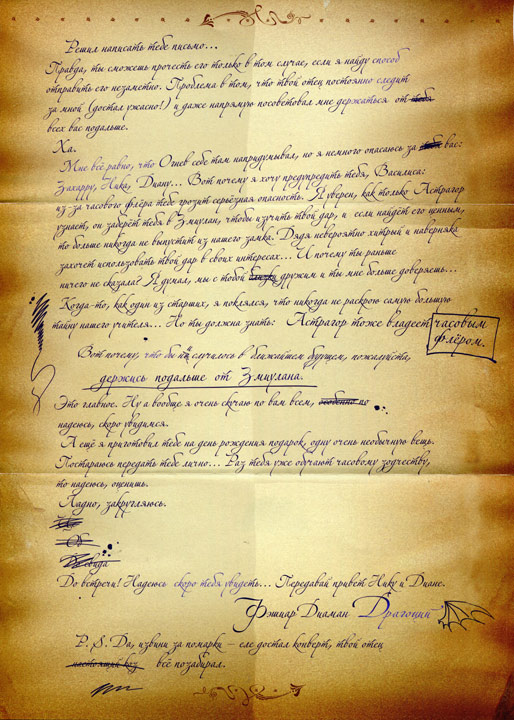 Решил написать тебе письмо...
Правда, ты сможешь прочесть его только в том случае, если я найду способ
отправить его незаметно. Проблема в том, что твой отец постоянно следит
за мной (достал ужасно!) и даже напрямую посоветовал мне держаться от тебя
всех вас подальше.
Ха.
Мне всё равно, что Огнев себе там напридумывал, но я немного опасаюсь за тебя вас:
Захарру, Ника, Диану... Вот почему я хочу предупредить тебя, Василиса:
из-за часового флёра тебе грозит серьёзная опасность. Я уверен, как только Астрагор
узнает, он заберёт тебя в Змиулан, чтобы изучить твой дар, и если найдёт его ценным,
то больше никогда не выпустит из нашего замка. Дядя невероятно хитрый и наверняка
захочет использовать твой дар в своих интересах... И почему ты раньше
ничего не сказала? Я думал, мы с тобой близки дружим и ты мне больше доверяешь...
Когда-то, как один из старших, я поклялся, что никогда не раскрою самую большую
тайну нашего учителя... Но ты должна знать: Астрагор тоже владеет часовым
флёром.
Вот почему, что бы ни случилось в ближайшем будущем, пожалуйста,
держись подальше от Змиулана.
Это главное. Ну а вообще я очень скучаю по вам всем, особенно по
надеюсь, скоро увидимся.
А ещё я приготовил тебе на день рождения подарок, одну очень необычную вещь.
Постараюсь передать тебе лично... Раз тебя уже обучают часовому зодчеству,
то надеюсь, оценишь.
Ладно, закругляюсь.
До встречи! Надеюсь скоро тебя увидеть... Передавай привет Нику и Диане.
Фэшиар Диаман Драгоций
P. S. Да, извини за помарки – еле достал конверт, твой отец
настоящий коз всё позабирал.